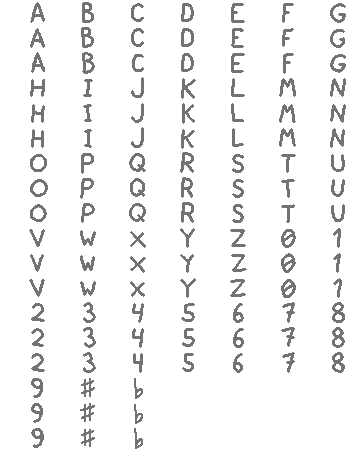 A B C D E F G
A B C D E F G
A B C D E F G
H I J K L M N
H I J K L M N
H I J K L M N
O P Q R S T U
O P Q R S T U
O P Q R S T U
V W X Y Z 0 1
V W X Y Z 0 1
V W X Y Z 0 1
2 3 4 5 6 7 8
2 3 4 5 6 7 8
2 3 4 5 6 7 8
9 # ♭
9 # ♭
9 # ♭